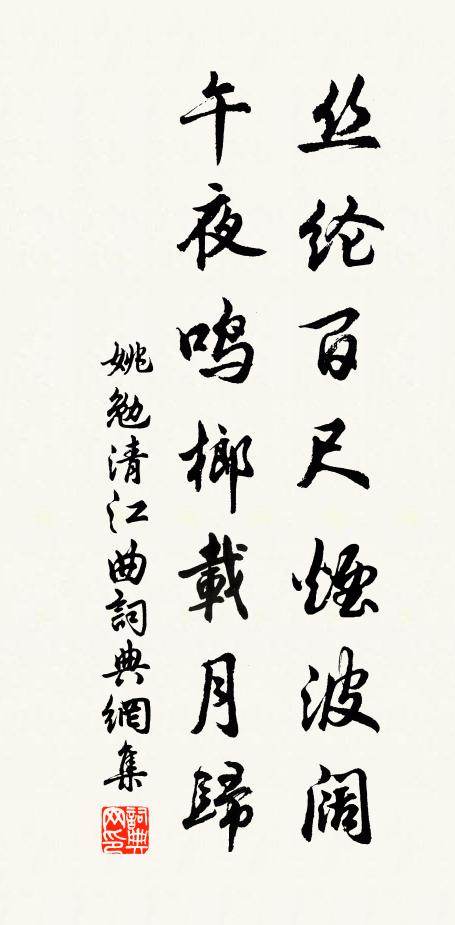 丝纶百尺煙波阔
午夜鸣榔載月歸
姚勉清江曲詞典網集
詞典网印